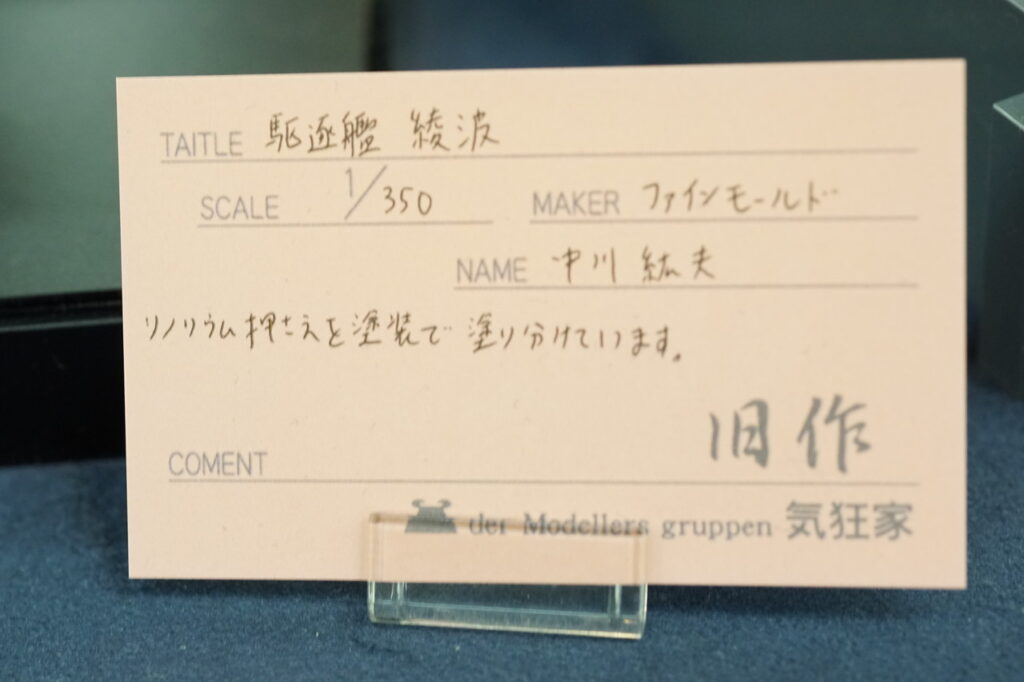 TAITLE 駆逐艦 綾波
SCALE 1/350 MAKER ファインモールド
NAME 中川 紘夫
リノリウム押さえを塗装で塗り分けています。
旧作
COMENT
der Modellers gruppen 気狂家